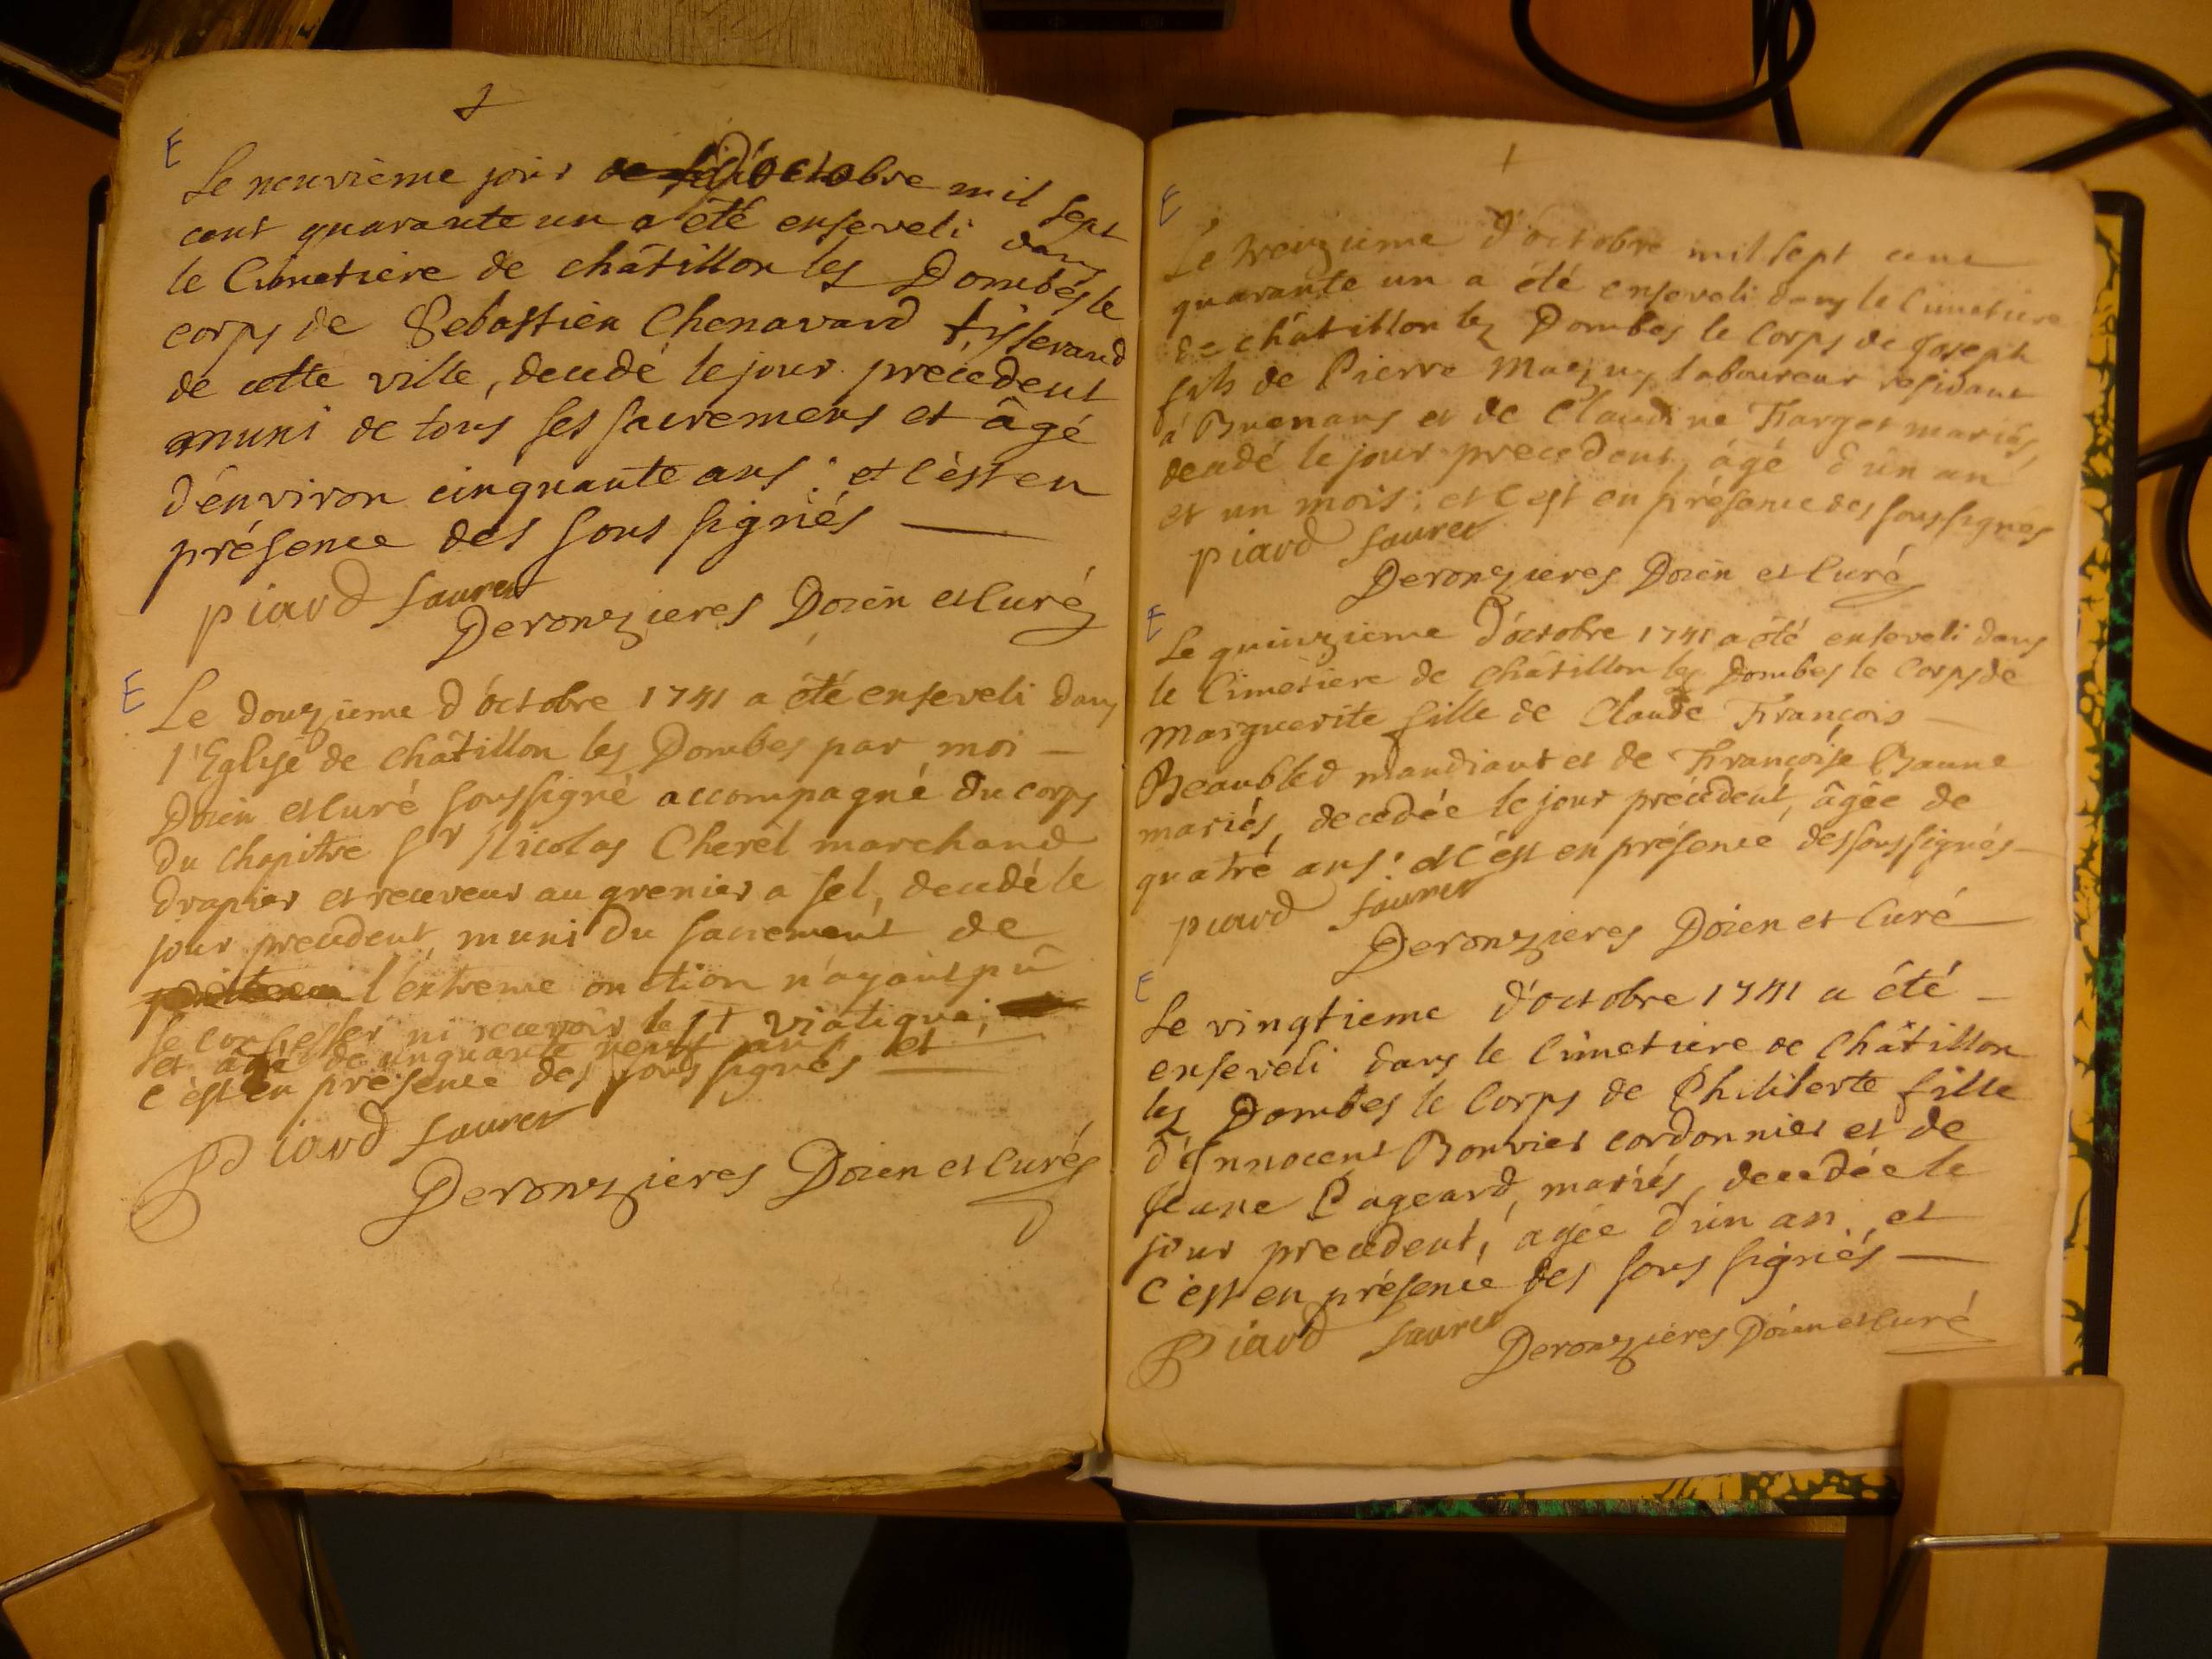 E
Le neuvième jour d'octobre mil sept
cent quarante un a été enseveli dans
le Cimetiere de châtillon les Dombes le
corps de Sebastien Chenavard tisserand
de cette ville, decedé le jour précédent
muni de tous ses sacremens et âgé
d'énviron cinquante ans : et c'est en
présence des sous signés
piard Sauret
Deronzieres Doien et Curé
E
Le douzieme d'octobre 1741 a été enseveli dans
l'Eglise de châtillon les Dombes par moi
Doien et curé soussigné accompagné du corps
du chapitre Sr Nicolas Cherel marchand
drapier et receveur au grenier a sel, decedé le
jour precedent, muni du sacrement de
l'éxtreme onction n'ayant pû
se confesser ni recevoir le St Viatique,
et âgé de cinquante neuf ans et
c'est en présence des sous signés
Piard Sauret
Deronzieres Doien et Curé
E
Le treizieme d'octobre mil sept cent
quarante un a été enseveli dans le Cimetiere
de châtillon lez Dombes le corps de Joseph
fils de Pierre laboureur residant
á Buenans et de Claudine Farget mariés,
decedé le jour precedent, âgé d'un an
et un mois : et c'est en présence des soussignés
piard Sauret
Deronzieres Doien et Curé
E
Le quinzieme d'octobre 1741 a été enseveli dans
le Cimetiere de Châtillon les Dombes le corps de
Marguerite fille de Claude François
Beaubled mandiant et de Françoise Baune
mariés, decedée le jour précédent, âgée de
quatre ans : et c'est en présence des soussignés
piard Sauret
Deronzieres Doien et Curé
E
Le vingtieme d'octobre 1741 a été
enseveli dans le Cimetiere de Châtillon
les Dombes le Corps de Philiberte fille
d'Innocent Bonvier cordonnier et de
Jeane Pageard, mariés, decedée le
jour precedent, agée d'un an, et
c'est en présence des sous signés
Piard Sauret
Deronzieres Doien et Curé